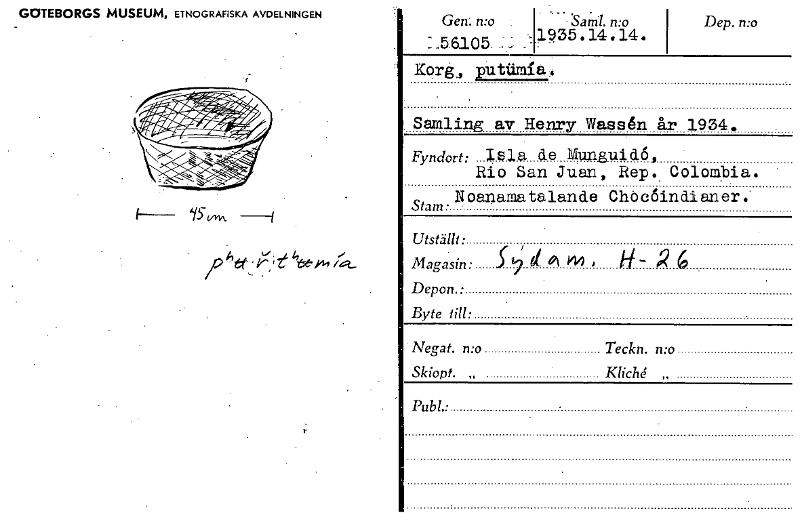 GÖTEBORGS MUSEUM, ETNOGRAFISKA AVDELNINGEN
45 cm
Gen. n:o
56105
Saml. n:o
1935.14.14.
Dep. n:o
Korg, putümía.
Samling av Henry Wassén år 1934.
Fyndort: Isla de Munguidó,
Rio San Juan, Rep. Colombia.
Stam: Noanamatalande Chocóindianer.
Utställt:
Magasin: Sydam. H-26
Depon.:
Byte till:
Negat. n:o Teckn. n:o
Skiopt. „ Kliché „
Publ.: